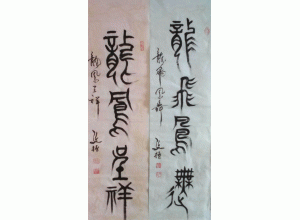 龍飛鳳舞
龍飛鳳舞
龍鳳呈祥
龍鳳呈祥